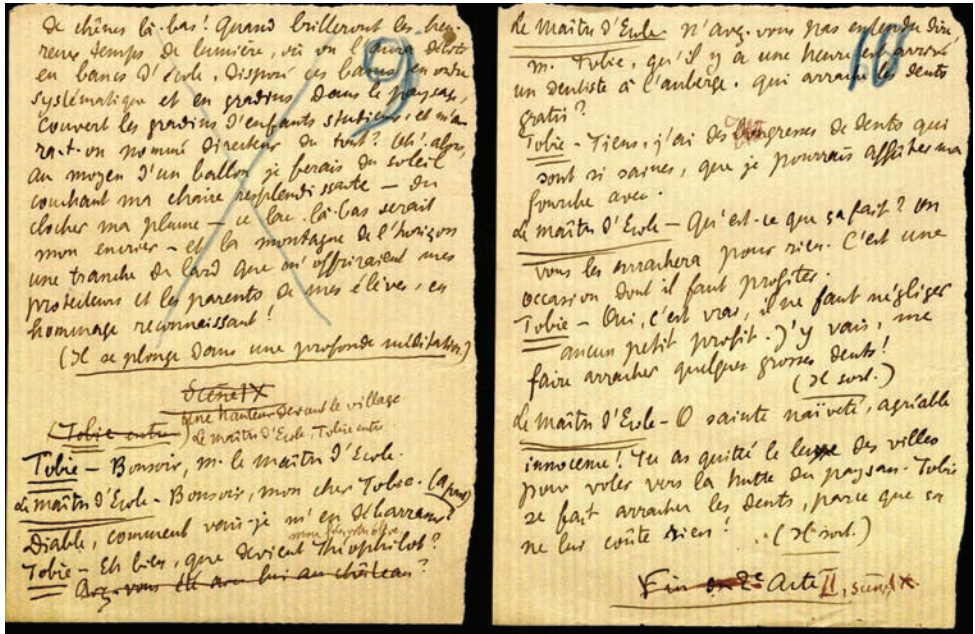 9
de chênes là-bas! Quand brilleront les heu-
reux temps de lumière, où on l'aura débité
en bancs d'école, disposé ces bancs en ordre
systématique et en gradins dans le paysage,
couvert les gradins d'enfants studieux, et m'au-
ra-t-on nommé directeur du tout? Oh! alors,
au moyen d'un ballon je ferais du soleil
couchant ma chaire resplendissante — du
clocher ma plume — ce lac là-bas serait
mon encrier — et la montagne de l'horizon
une tranche de lard que m'offriraient mes
protecteurs et les parents de mes élèves, en
hommage reconnaissant!
(Il se plonge dans une profonde méditation.)
Scène IX
Une hauteur devant le village
(Tobie entre) Le maître d'Ecole, Tobie entre
Tobie — Bonsoir, M. le maître d'Ecole.
Le maître d'Ecole — Bonsoir, mon cher Tobie. (à part)
Diable, comment vais-je m'en débarrasser?
Tobie — Eh bien, que devient Théophilot?
Avez-vous été avec lui au château?
10
Le Maître d'Ecole n'avez-vous pas entendu dire,
M. Tobie, qu'il y a une heure est arrivé
un dentiste à l'auberge, qui arrache les dents
gratis?
Tobie — Tiens, j'ai des de dents qui
sont si saines, que je pourrais affûter ma
fourche avec.
Le maître d'Ecole — Qu'est-ce que ça fait? On
vous les arrachera pour rien. C'est une
occasion dont il faut profiter.
Tobie — Oui, c'est vrai, il ne faut négliger
aucun petit profit. J'y vais, me
faire arracher quelques grosses dents!
(Il sort.)
Le maître d'Ecole — O sainte naïveté, agréable
innocence! Tu as quitté le luxe des villes
pour voler vers la hutte du paysan. Tobie
se fait arracher les dents, parce que ça
ne lui coûte rien! (Il sort.)
Fin 2e Acte II, scène IX.